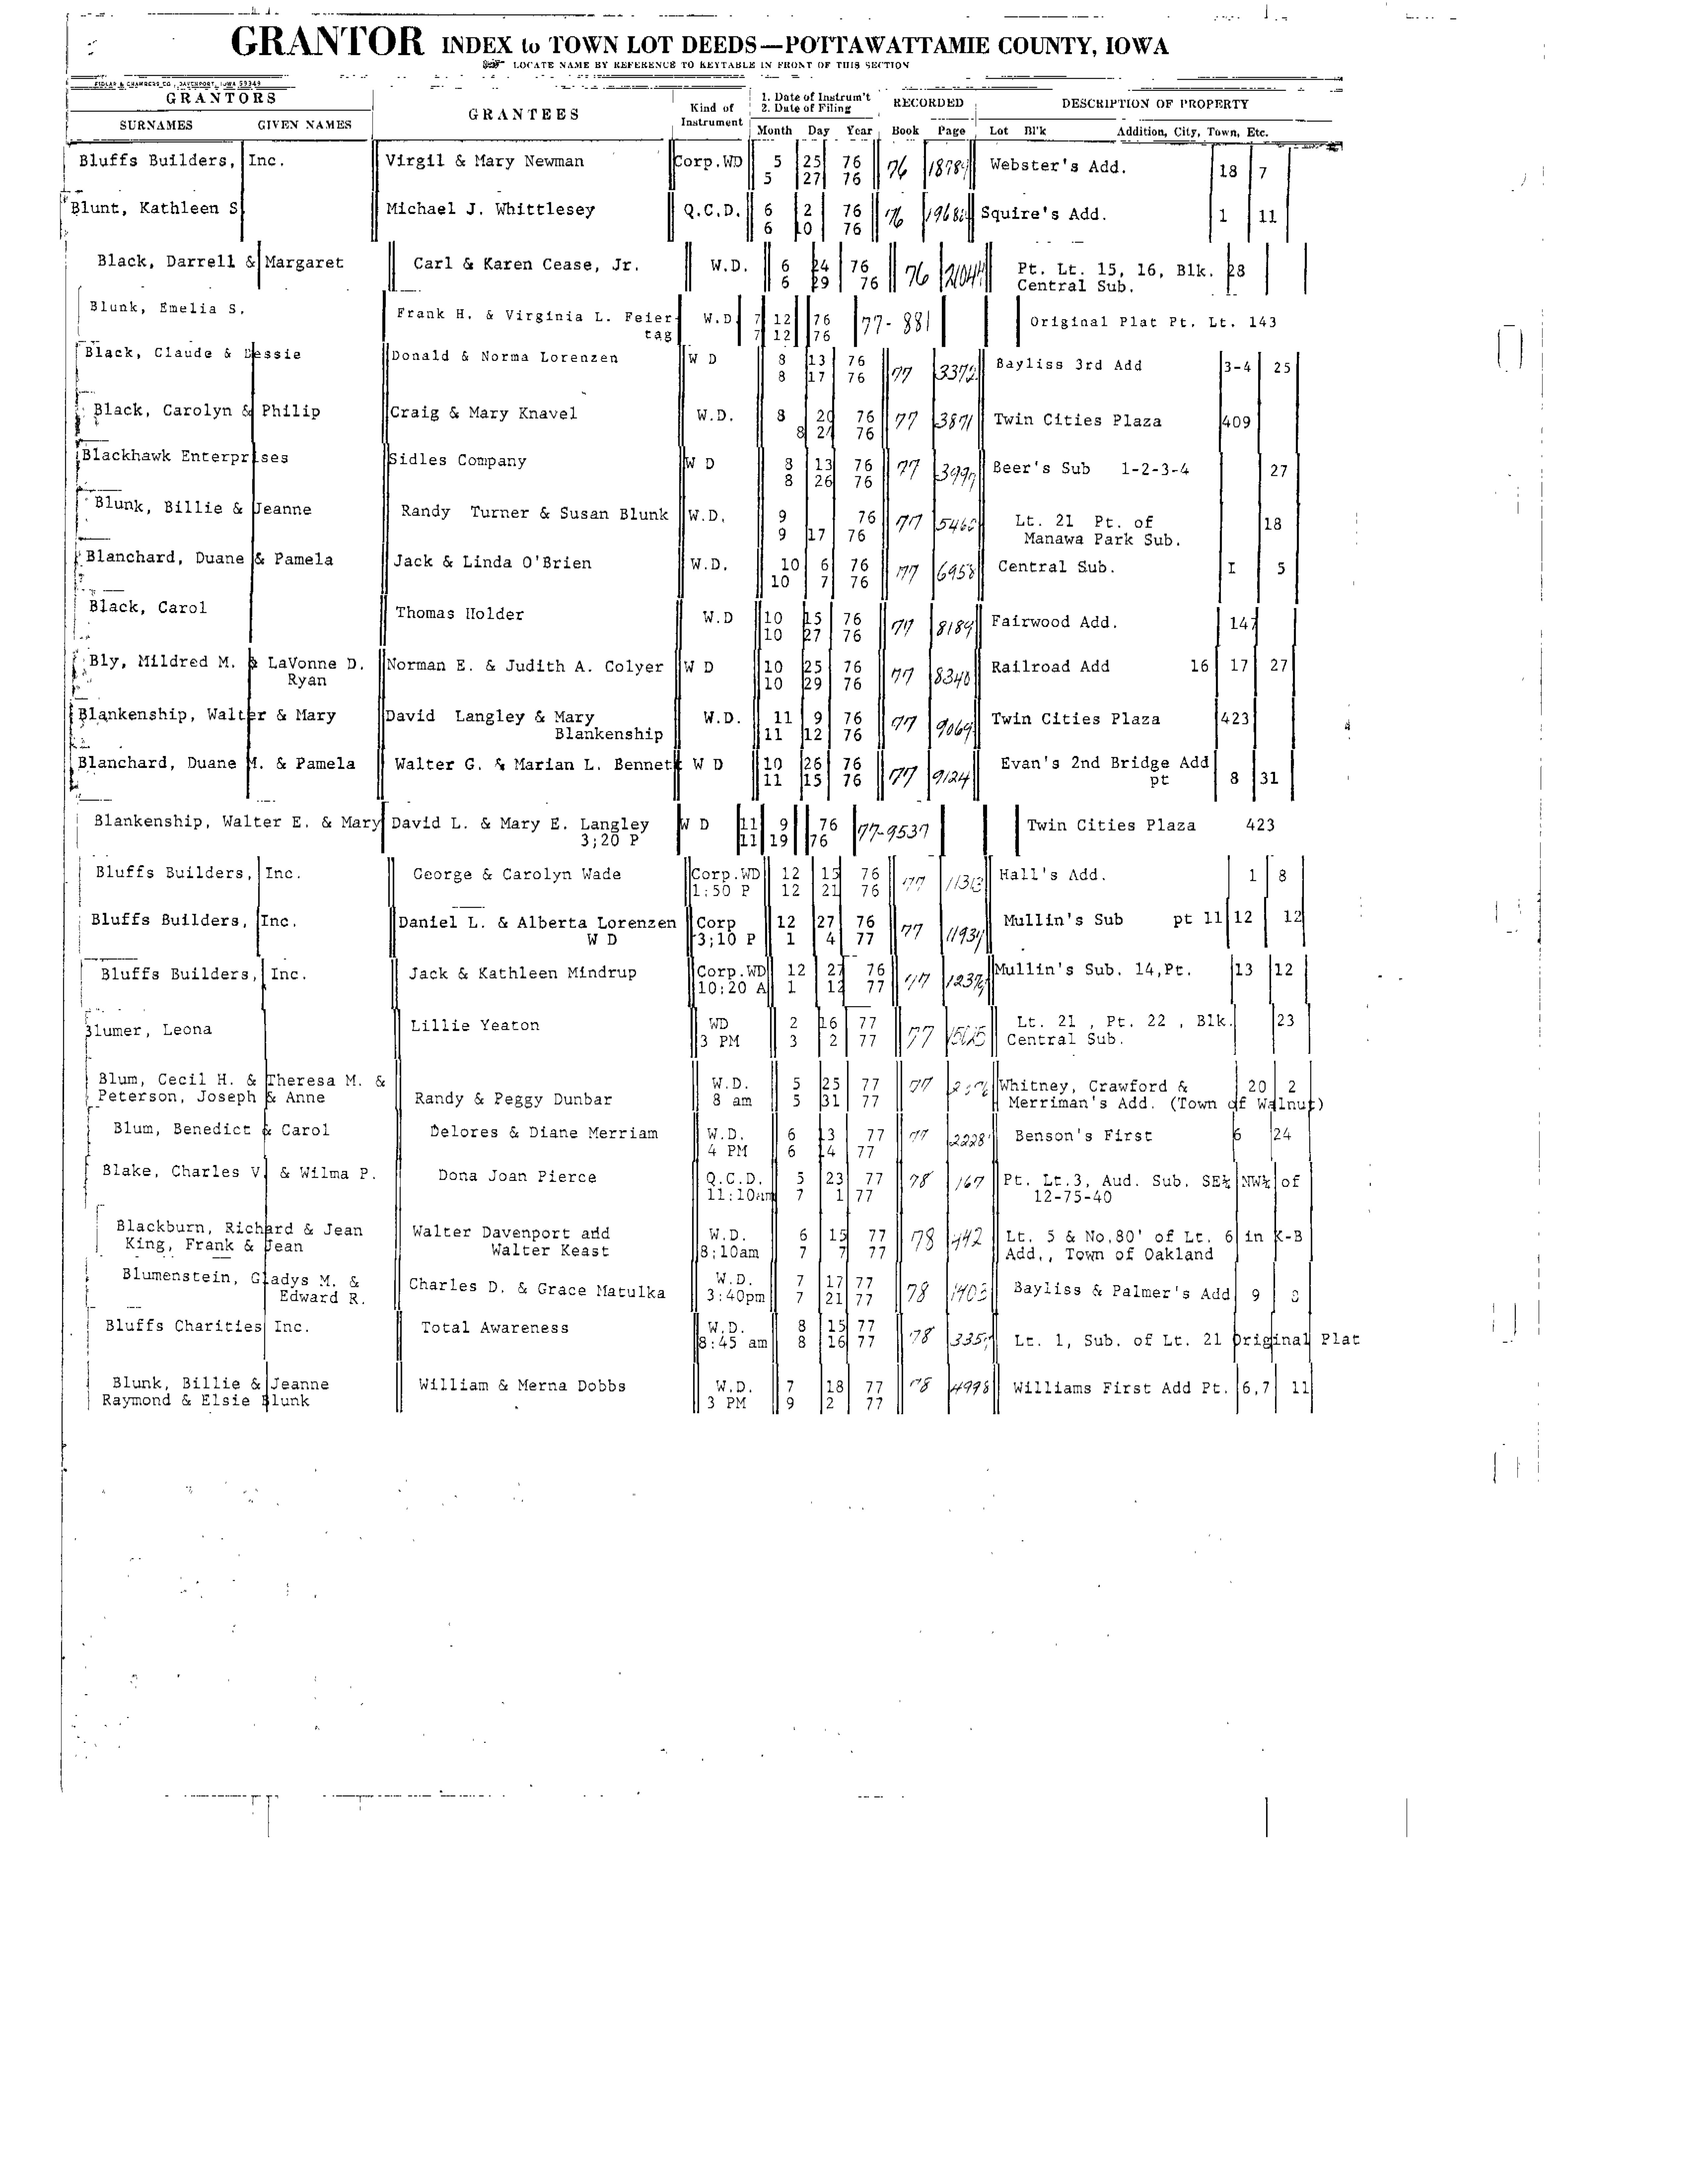 GRANTOR INDEX to TOWN LOT DEEDS—POTTAWATTAMIE COUNTY, IOWA
LOCATE NAME BY REFERENCE TO KEYTABLE IN FRONT OF THIS SECTION
FIDLAR & CHAMBERS CO., DAVENPORT, IOWA
GRANTORS GRANTEES Kind of Instrument 1. Date of Instrum't 2. Date of Filing RECORDED DESCRIPTION OF PROPERTY
SURNAMES GIVEN NAMES Month Day Year Book Page Lot Bl'k Addition, City, Town, Etc.
Bluffs Builders, Inc. Virgil & Mary Newman Corp.WD 5 25 76 76 Webster's Add. 18 7
5 27 76
Blunt, Kathleen S Michael J. Whittlesey Q.C.D. 6 2 76 76 Squire's Add. 1 11
6 10 76
Black, Darrell & Margaret Carl & Karen Cease, Jr. W.D. 6 24 76 76 Pt. Lt. 15, 16, Blk. 28
6 29 76 Central Sub.
Blunk, Emelia S. Frank H. & Virginia L. Feier W.D 7 12 76 77-881 Original Plat Pt. Lt. 143
tag 7 12 76
Black, Claude & Dessie Donald & Norma Lorenzen W D 8 13 76 77 3372 Bayliss 3rd Add 3-4 25
8 17 76
Black, Carolyn & Philip Craig & Mary Knavel W.D. 8 20 76 77 3871 Twin Cities Plaza 409
8 24 76
Blackhawk Enterprises Sidles Company W D 8 13 76 77 Beer's Sub 1-2-3-4 27
8 26 76
Blunk, Billie & Jeanne Randy Turner & Susan Blunk W.D. 9 76 77 5460 Lt. 21 Pt. of 18
9 17 76 Manawa Park Sub.
Blanchard, Duane & Pamela Jack & Linda O'Brien W.D. 10 6 76 77 6958 Central Sub. I 5
10 7 76
Black, Carol Thomas Holder W.D 10 15 76 77 8189 Fairwood Add. 147
10 27 76
Bly, Mildred M. & LaVonne D. Norman E. & Judith A. Colyer W D 10 25 76 77 8340 Railroad Add 16 17 27
Ryan 10 29 76
Blankenship, Walter & Mary David Langley & Mary W.D. 11 9 76 77 9069 Twin Cities Plaza 423
Blankenship 11 12 76
Blanchard, Duane M. & Pamela Walter G. & Marian L. Bennett W D 10 26 76 77 9124 Evan's 2nd Bridge Add
11 15 76 pt 8 31
Blankenship, Walter E. & Mary David L. & Mary E. Langley W D 11 9 76 77-9537 Twin Cities Plaza 423
3;20 P 11 19 76
Bluffs Builders, Inc. George & Carolyn Wade Corp.WD 12 15 76 77 11313 Hall's Add. 1 8
1:50 P 12 21 76
Bluffs Builders, Inc. Daniel L. & Alberta Lorenzen Corp 12 27 76 77 11934 Mullin's Sub pt 11 12 12
W D 3;10 P 1 4 77
Bluffs Builders, Inc. Jack & Kathleen Mindrup Corp.WD 12 27 76 77 Mullin's Sub. 14,Pt. 13 12
10:20 A 1 12 77
Blumer, Leona Lillie Yeaton WD 2 16 77 77 Lt. 21 , Pt. 22 , Blk. 23
3 PM 3 2 77 Central Sub.
Blum, Cecil H. & Theresa M. & W.D. 5 25 77 77 Whitney, Crawford & 20 2
Peterson, Joseph & Anne Randy & Peggy Dunbar 8 am 5 31 77 Merriman's Add. (Town of Walnut)
Blum, Benedict & Carol Delores & Diane Merriam W.D. 6 13 77 77 Benson's First 6 24
4 PM 6 14 77
Blake, Charles V. & Wilma P. Dona Joan Pierce Q.C.D. 5 23 77 78 167 Pt. Lt.3, Aud. Sub. SE¼ NW¼ of
11:10am 7 1 77 12-75-40
Blackburn, Richard & Jean Walter Davenport and W.D. 6 15 77 78 442 Lt. 5 & No.80' of Lt. 6 in K-B
King, Frank & Jean Walter Keast 8:10am 7 7 77 Add,, Town of Oakland
Blumenstein, Gladys M. & Charles D. & Grace Matulka W.D. 7 17 77 78 Bayliss & Palmer's Add 9
Edward R. 3:40pm 7 21 77
Bluffs Charities Inc. Total Awareness W.D. 8 15 77 78 Lt. 1, Sub. of Lt. 21 Original Plat
8:45 am 8 16 77
Blunk, Billie & Jeanne William & Merna Dobbs W.D. 7 18 77 78 4998 Williams First Add Pt. 6,7 11
Raymond & Elsie Blunk 3 PM 9 2 77